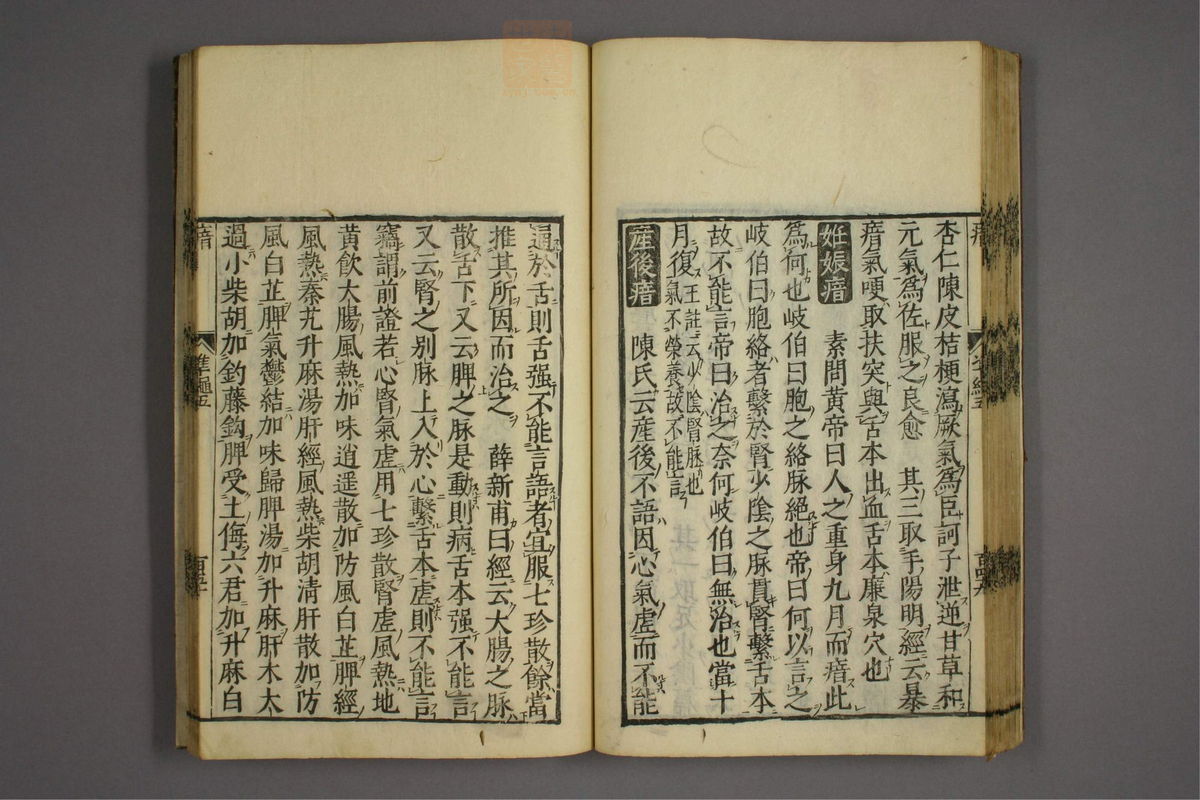 杏仁陳皮桔梗瀉厥氣爲臣訶子泄逆甘草和
元氣爲佐服之良愈 其三取手陽明經云暴
瘖氣哽取扶突與舌本出血舌本廉泉穴也
妊娠瘖 素問黃帝曰人之重身九月而瘖此
爲何也岐伯曰胞之絡脉絕也帝曰何以言之
岐伯曰胞絡者繫於腎少陰之脉貫腎繫舌本
故不能言帝曰治之奈何岐伯曰無治也當十
月復王註云少陰腎脉也氣不榮養故不能言
產後瘖 陳氏云產後不語因心氣虛而不能
通於舌則舌强不能言語者宜服七珍散餘當
推其所因而治之 薛新甫曰經云大腸之脉
散舌下又云脾之脉是動則病舌本强不能言
又云腎之别脉上入於心繫舌本虛則不能言
竊謂前證若心腎氣虛用七珍散腎虛風熱地
黃飲大腸風熱加味逍遥散加防風白芷脾經
風熱秦艽升麻湯肝經風熱柴胡淸肝散加防
風白芷脾氣鬱結加味歸脾湯加升麻肝木太
過小柴胡加釣藤鈎脾受土侮六君加升麻白
瘖
準繩五